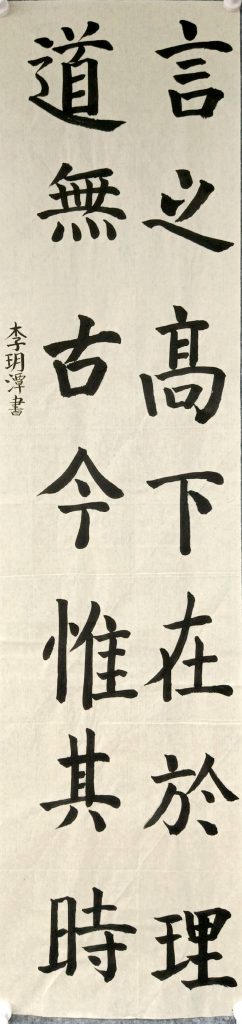 言之髙下在於理
道無古今惟其時
李玥潭書